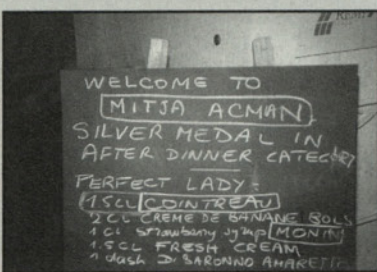 WELCOME TO
MITJA ACMAN
SILVER MEDAL IN
AFTER DINNER CATEGORY
PERFECT LADY:
1.5CL COINTREAU
2 CL CREME DE BANANE BOLS
1 CL strawberry syrup MONIN
1.5 CL FRESH CREAM
1 dash DI SARONNO AMARETTO